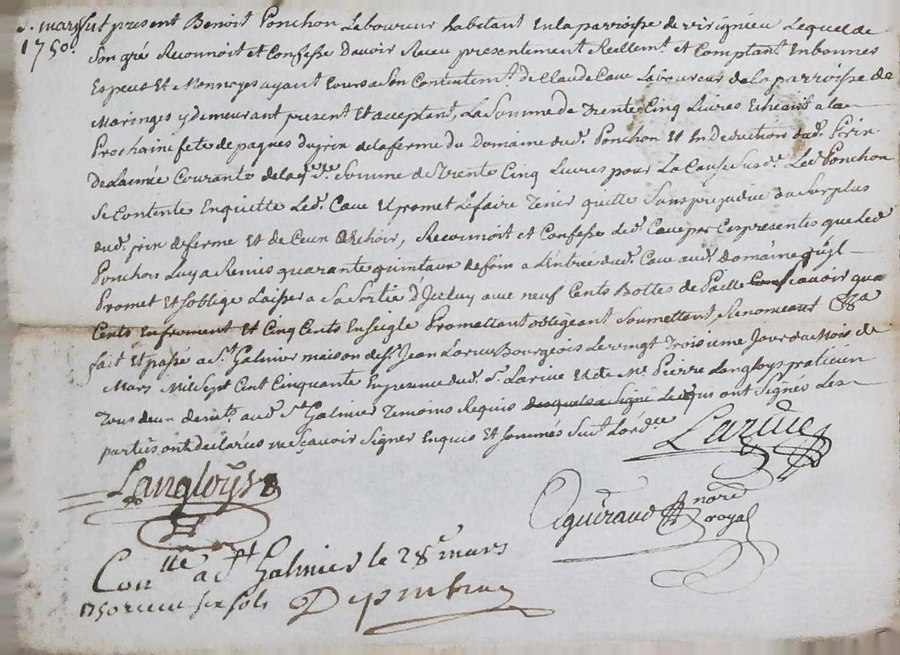 mars
1750
fut present Benoit Ponchon Laboureur habitant En la parroisse de virignieu Lequel de
Son gré Reconnoit et Confesse D'avoir Receu presentement Reellemt. et Comptant En bonnes
Especes Et Monnoyes ayant Cours a Son Contentemt. de Claude Cave Laboureur de la parroisse de
Maringes y demeurant, present Et acceptant, La Somme de Trente Cinq Livres Echeants a la
Prochaine fete de paques du prix de la ferme du Domaine dud. Ponchon Et En Deduction dud. prix
De L'année Courante de laqle. Somme de Trente Cinq Livres pour La Cause Susd. Led. Ponchon
Se Contente En quitte Led. Cave Et promet Le faire Tenir quitte Sans prejudice du Surplus
dud. prix de ferme Et de Ceux a Echoir, Reconnoit et Confesse Led. Cave par Ces presentes que Led
Ponchon Luy a Remis quarante quintaux de foin a L'entrée dud. Cave aud. domaine qu'il
Promet Et S'oblige Laisser a Sa Sortie D'Iceluy avec neuf Cents Bottes de Paille Scavoir qua
Cents En froment Et Cinq Cents En Seigle Promettant obligeant Soumettant, Renonceant &a
fait Et passé a St. Galmier maison de Sr. Jean Larive Bourgeois Le vingt Troisieme Jour du Mois de
Mars Mil Sept Cent Cinquante En presence dud. Sr. Larive Et de Me Pierre Langloys praticien
Tous deux demts. aud. St. Galmier Temoins Requis qui ont Signés Les
parties ont declarées ne Sçavoir Signer Enquis Et Sommés Suivt. L'ordce
Larive
Langloys
nore
royal
Conlle a St. Galmier le 28e mars
1750 receu six sols